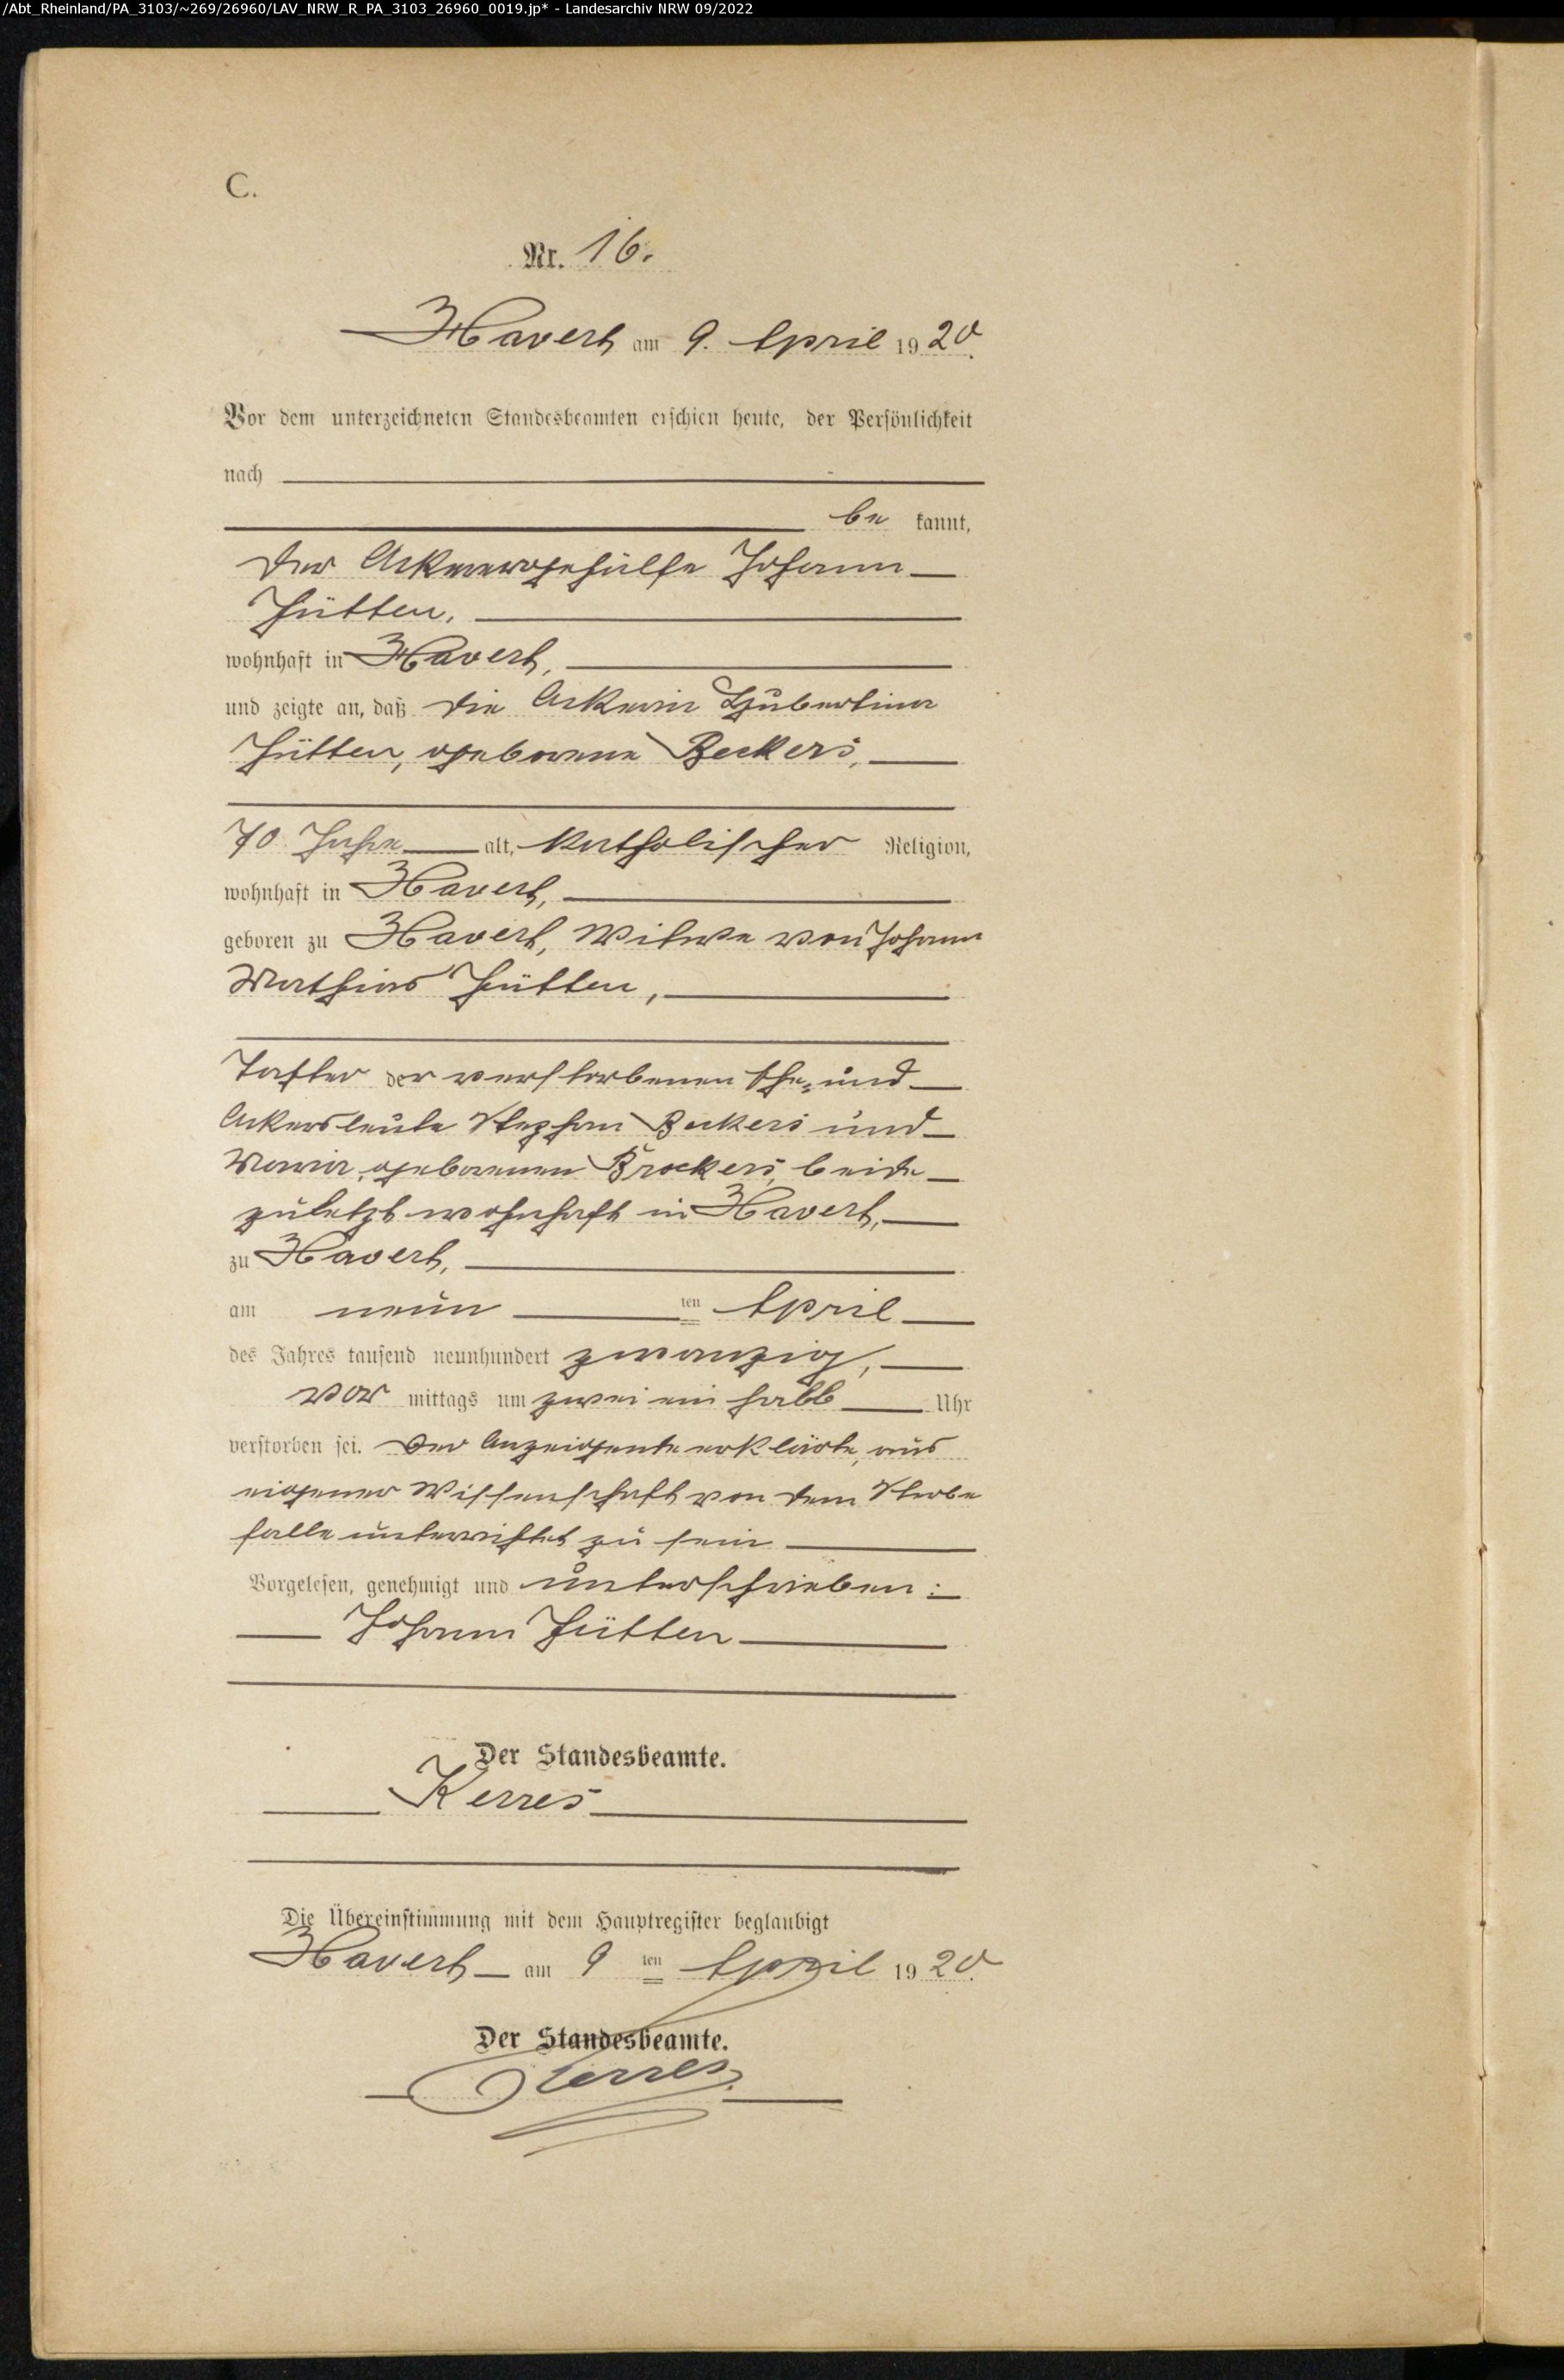 /Abt_Rheinland/PA_3103/~269/26960/LAV_NRW_R_PA_3103_26960_0019.jp* - Landesarchiv NRW 09/2022
C.
Nr. 16.
Havert am 9. April 1920.
Vor dem unterzeichneten Standesbeamten erschien heute, der Persönlichkeit
nach
be kannt,
der Ackerergehülfe Johann
Jütten,
wohnhaft in Havert,
und zeigte an, daß die Ackerin Hubertina
Jütten, geborene Beckers,
70 Jahre alt, katholischer Religion,
wohnhaft in Havert,
geboren zu Havert, Witwe von Johann
Mathias Jütten,
Tochter der verstorbenen Ehe- und
Ackersleute Stephan Beckers und
Maria, geborenen Brockers, beide
zuletzt wohnhaft in Havert,
zu Havert,
am neun ten April
des Jahres tausend neunhundert zwanzig,
vor mittags um zwei ein halb Uhr
verstorben sei. Der Anzeigende erklärte, aus
eigener Wissenschaft von dem Sterbe
falle unterrichtet zu sein
Vorgelesen, genehmigt und unterschrieben:
Johann Jütten
Der Standesbeamte.
Kerres
Die Übereinstimmung mit dem Hauptregister beglaubigt
Havert am 9 ten April 1920.
Der Standesbeamte.
Kerres.